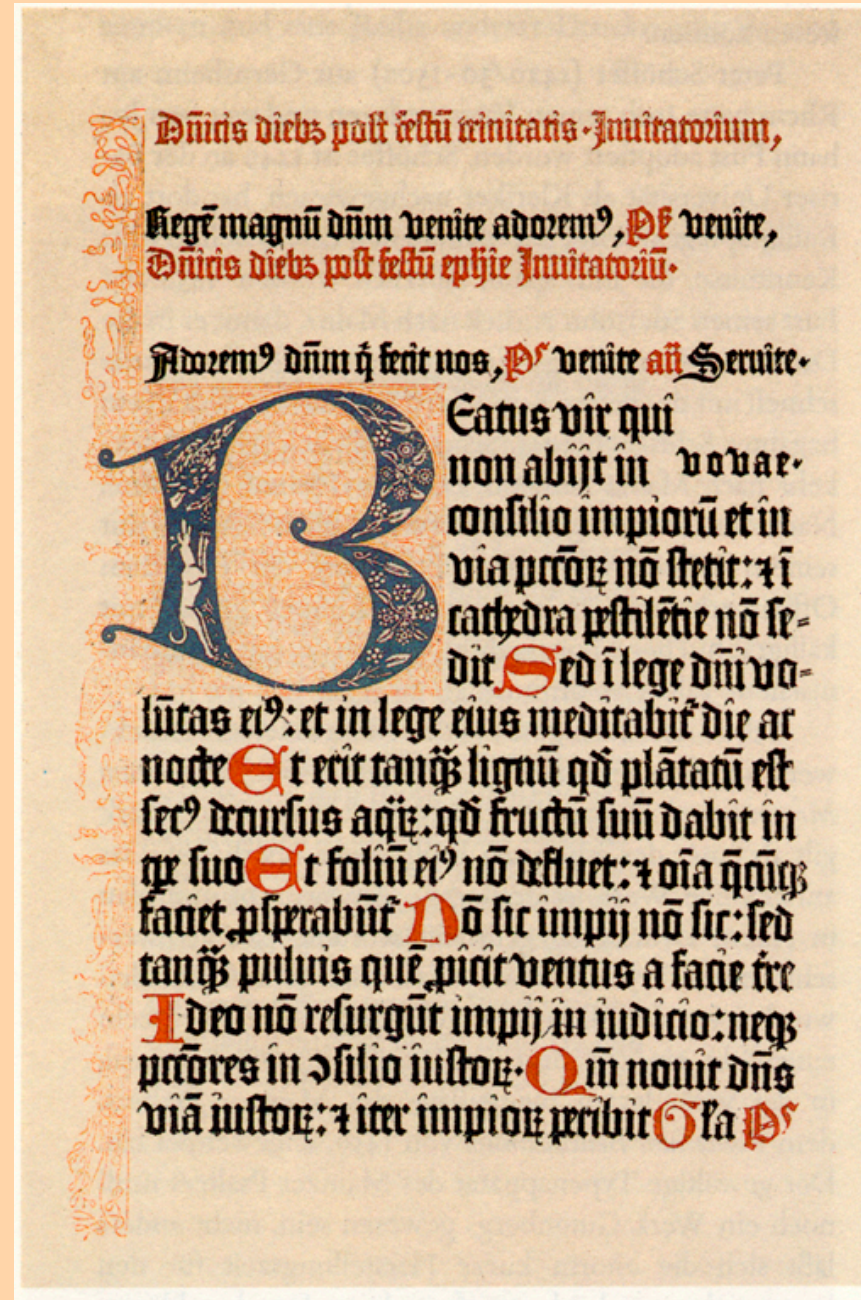 Dñicis diebꝫ post festū trinitatis · Inuitatorium,
Regē magnū dñm venite adoremꝰ, Pſ venite,
Dñicis diebꝫ post festū ephie Inuitatoriū ·
Adoremꝰ dñm q̄ fecit nos, Pſ venite añ Seruite ·
BEatus vir qui
non abijt in vovae ·
consilio impiorū et in
via pccōꝝ nō stetit: ⁊ ī
cathedra pestilētie nō se-
dit Sed ī lege dñi vo-
lūtas eiꝰ: et in lege eius meditabit᷑ die ac
nocte Et erit tanqꝫ lignū qď plātatū est
secꝰ decursus aqꝝ: qď fructū suū dabit in
tpe suo Et foliū eiꝰ nō defluet: ⁊ oīa q̄cūqꝫ
faciet ꝓsperabūt᷑ Nō sic impij nō sic: sed
tanqꝫ puluis quē ꝓicit ventus a facie tre
Ideo nō resurgūt impij in iudicio: neqꝫ
pccōres in ꝯsilio iustoꝝ · Qm̄ nouit dñs
viā iustoꝝ: ⁊ iter impioꝝ peribit Gła Pſ